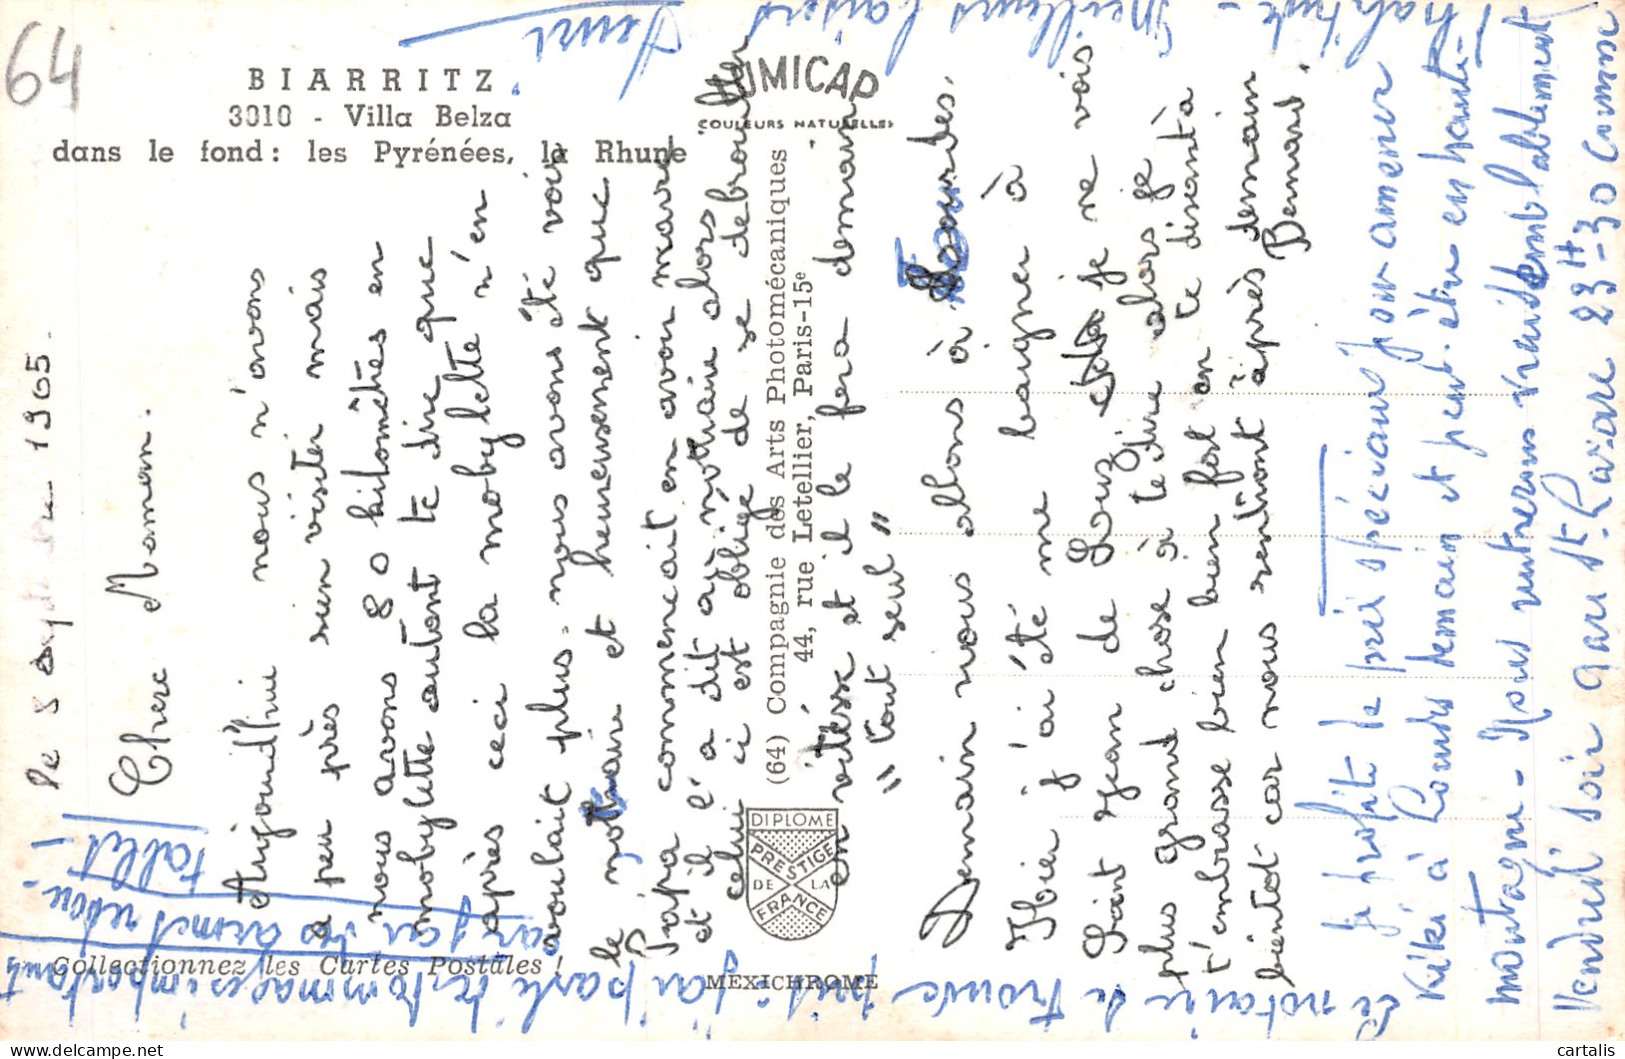 64
BIARRITZ
3010 - Villa Belza
dans le fond : les Pyrénées, la Rhune
UMICAP
COULEURS NATURELLES
(64) Compagnie des Arts Photomécaniques
44, rue Letellier, Paris-15e
DIPLOME
PRESTIGE
DE LA
FRANCE
Collectionnez les Cartes Postales !
MEXICHROME
le 8 1965.
Chere Maman.
Aujourd'hui nous n'avons
a peu près rien visiter mais
nous avons 80 kilomêtres en
mobylette autant te dire que
après ceci la mobylette n'en
voulait plus. nous avons été voir
le notaire et heureusement que
Papa commencait en avoir marre
et il l'a dit au notaire alors
celui ci est obligé de se debrouiller
en vitesse et il le fera demain
"tout seul"
Demain nous allons à Lourdes.
Hier j'ai été me baigner à
Saint Jean de Luz je ne vois
plus grand chose à te dire alors je
t'embrasse bien bien fort en te disant à
bientot car nous rentront après demain
Bernard.
Je profite de prix spéciaux pour amener
Kiki à Lourdes demain et peut-être en haute
montagne - Nous rentrerons vraisemblablement
Vendredi soir Gare St. Lazare 23H-30 comme
d'habitude - Meilleurs baisers
Henri
Le notaire se trouve
j'ai parlé de dommages importants
car j'ai